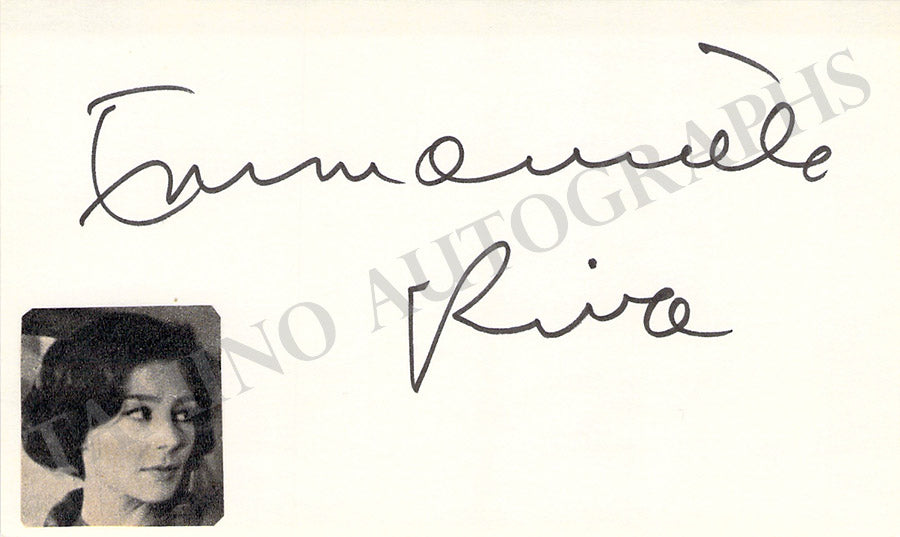 Emmanuèle
Riva
TAMINO AUTOGRAPHS